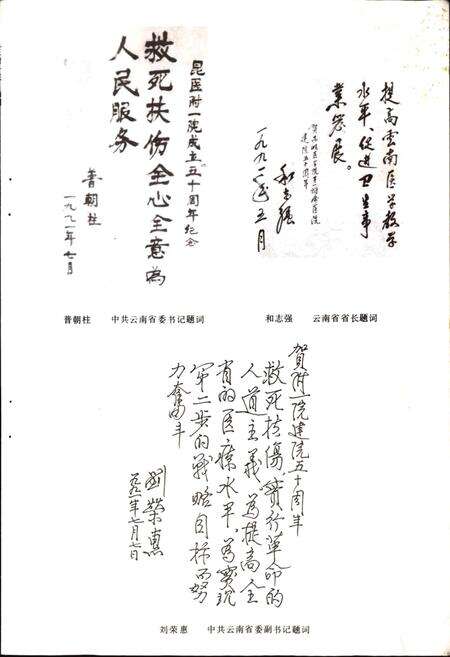 昆医附一院成立五十周年纪念
救死扶伤全心全意为
人民服务
普朝柱
一九九一年七月
提高云南医学教学
水平、促进卫生事
业发展。
贺昆明医学院第一附属医院
建院五十周年
和志强
一九九一年五月
普朝柱 中共云南省委书记题词
和志强 云南省省长题词
贺附一院建院五十周年
救死扶傷，實行革命的
人道主義，為提高全
省的医療水平，為實現
第二步的戰略目标而努
力奮鬥
劉榮惠
一九九一年七月七日
刘荣惠 中共云南省委副书记题词